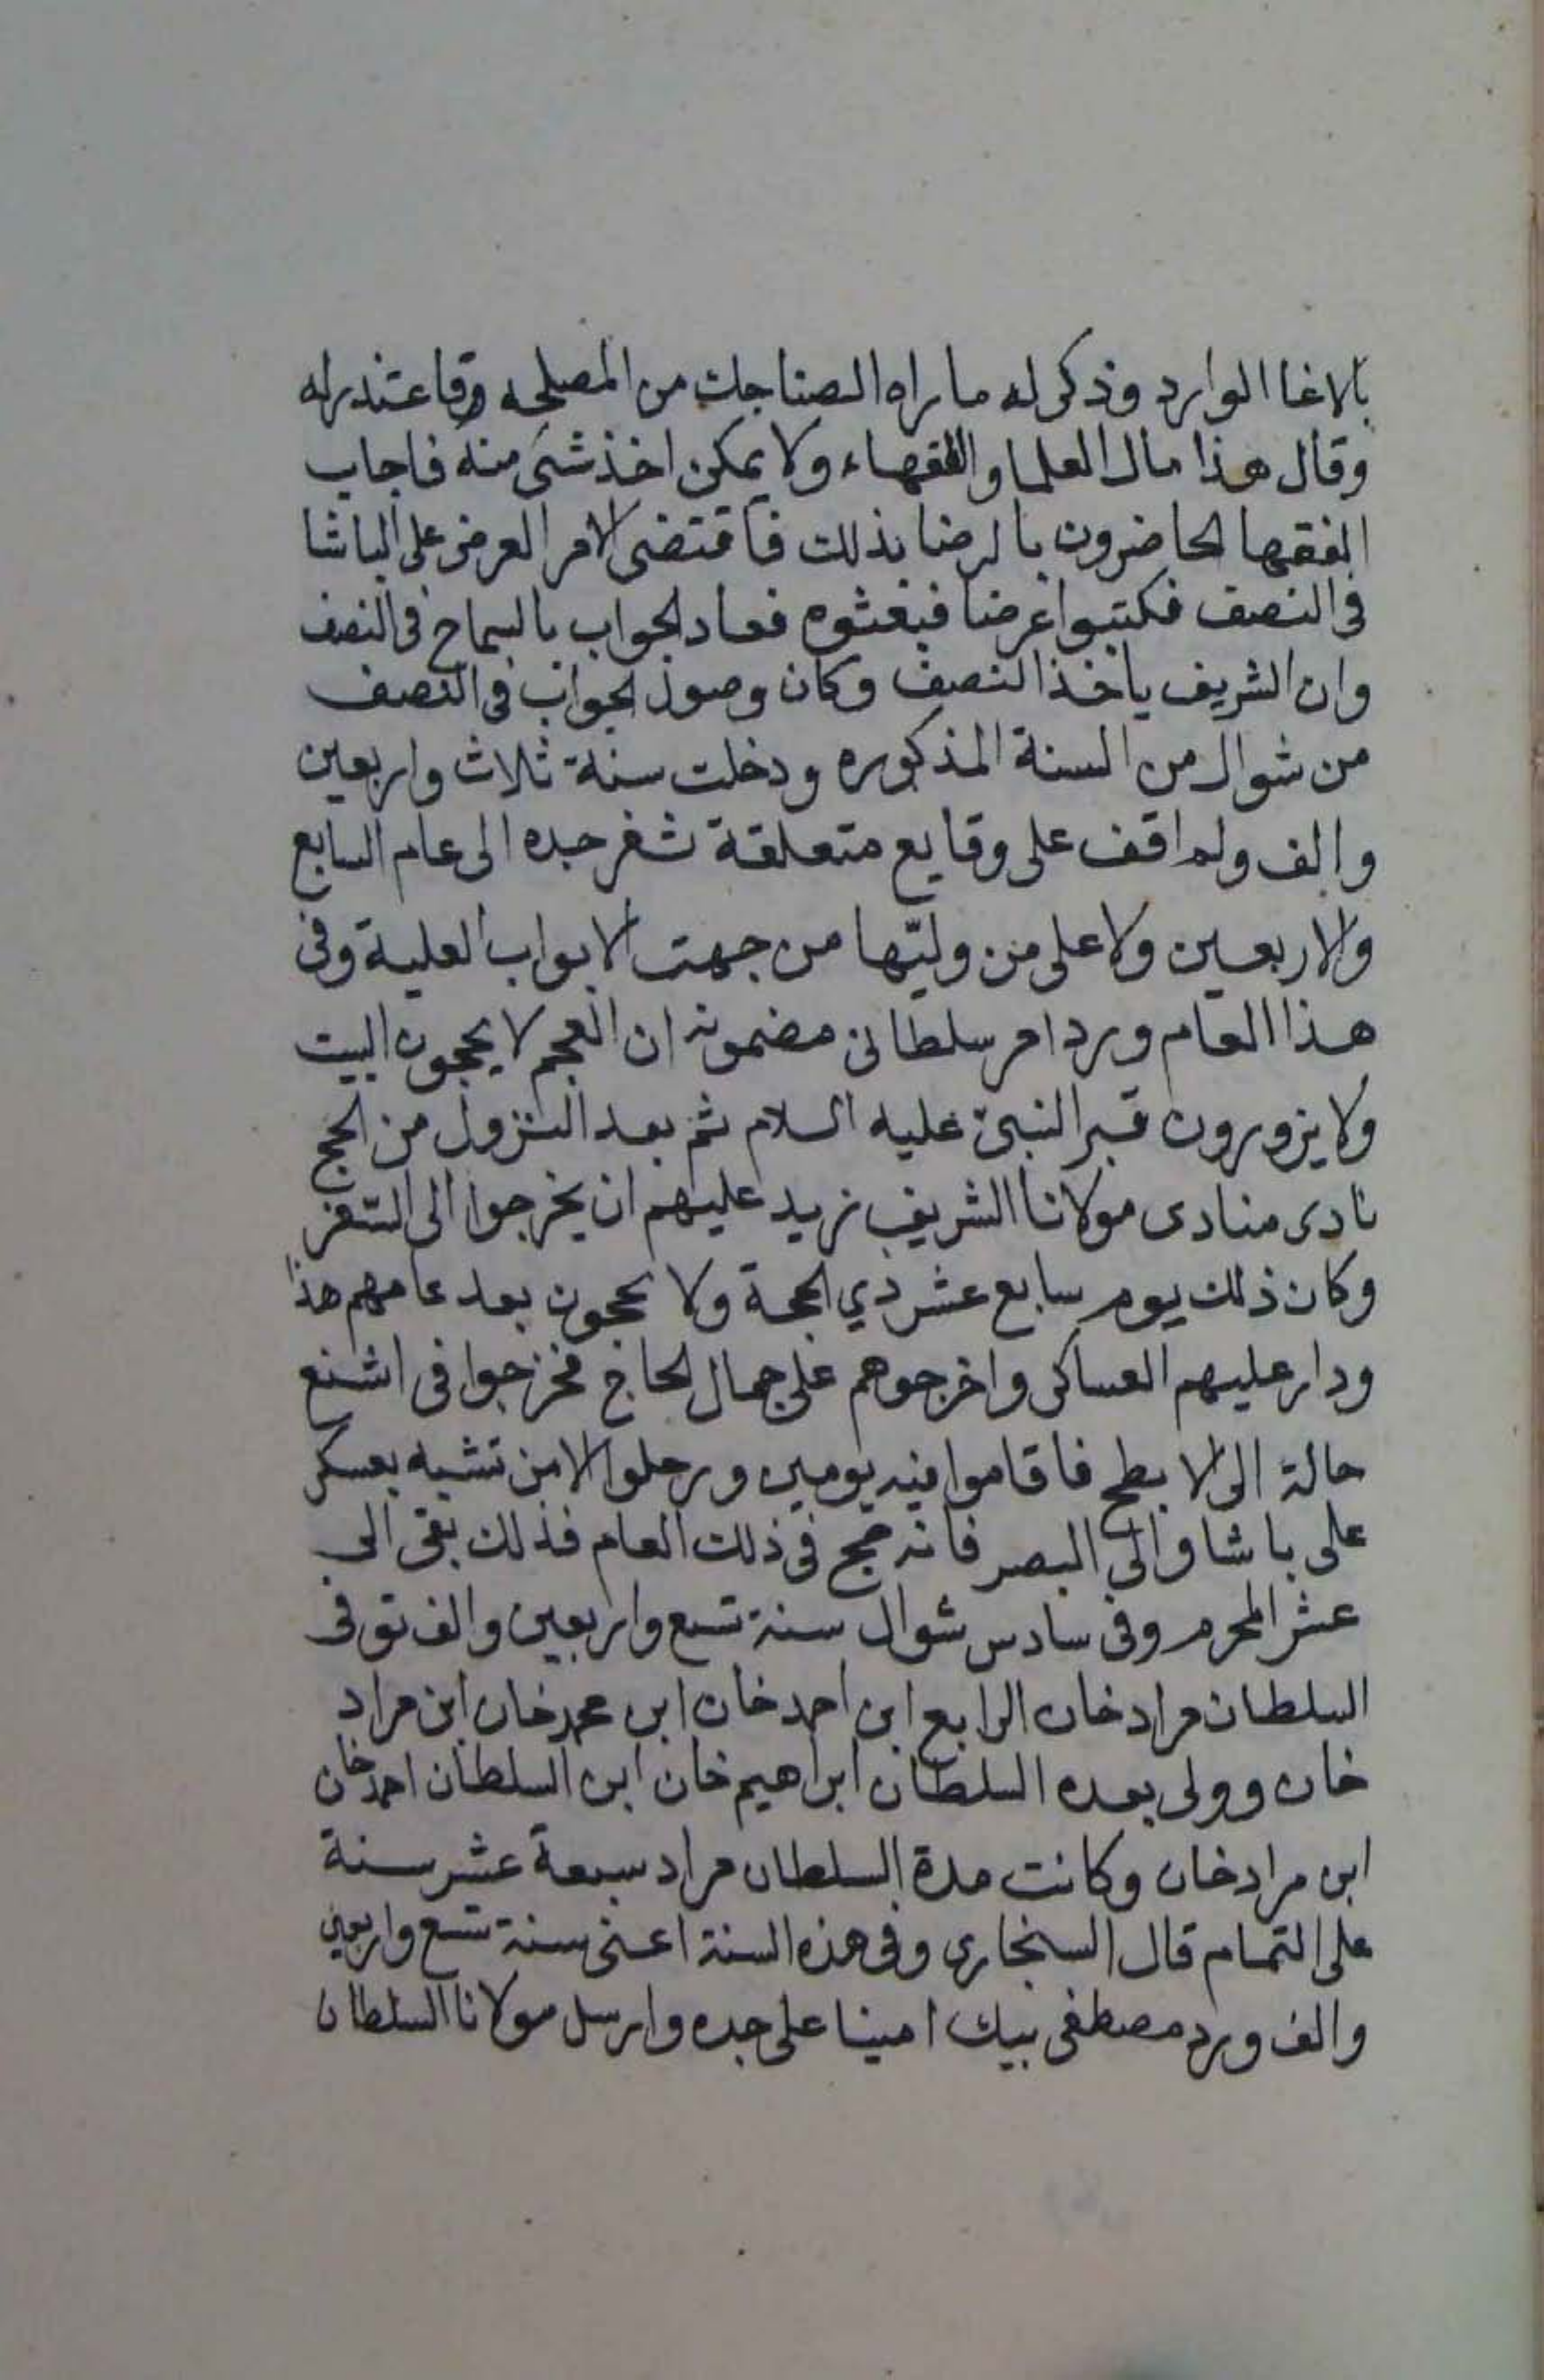 بالاغا الوارد وذكر له ما راه الصناجك من المصلحه وقاعتذر له
وقال هذا مال العلما والفقهاء ولا يمكن اخذ شئ منه فاجاب
الفقها الحاضرون بالرضا بذلك فاقتضى الامر العرض على الباشا
فى النصف فكتبوا عرضا فبعثوه فعاد الجواب بالسماح فى النصف
وان الشريف ياخذ النصف وكان وصول الجواب فى النصف
من شوال من السنة المذكوره ودخلت سنة ثلاث واربعين
والف ولم اقف على وقايع متعلقة بثغر جده الى عام السابع
والاربعين ولا على من وليّها من جهت الابواب العلية وفى
هذا العام ورد امر سلطانى مضمونه ان العجم لا يحجون البيت
ولا يزورون قبر النبىّ عليه السلام ثم بعد النزول من الحج
نادى منادى مولانا الشريف زيد عليهم ان يخرجوا الى السفر
وكان ذلك يوم سابع عشر ذي الحجة ولا يحجون بعد عامهم هذا
ودار عليهم العساكر واخرجوهم على جمال الحاج فخرجوا فى اشنع
حالة الى الابطح فاقاموا فيه يومين ورحلوا الا من تشبه بعسكر
على باشا والى البصر فانه حج فى ذلك العام فذلك بقى الى
عشر المحرم وفى سادس شوال سنة تسع واربعين والف توفى
السلطان مراد خان الرابع ابن احمد خان ابن محمد خان ابن مراد
خان وولى بعده السلطان ابراهيم خان ابن السلطان احمد خان
ابن مراد خان وكانت مدة السلطان مراد سبعة عشر سنة
على التمام قال السنجارى وفى هذه السنة اعنى سنة تسع واربعين
والف ورد مصطفى بيك امينا على جده وارسل مولانا السلطان